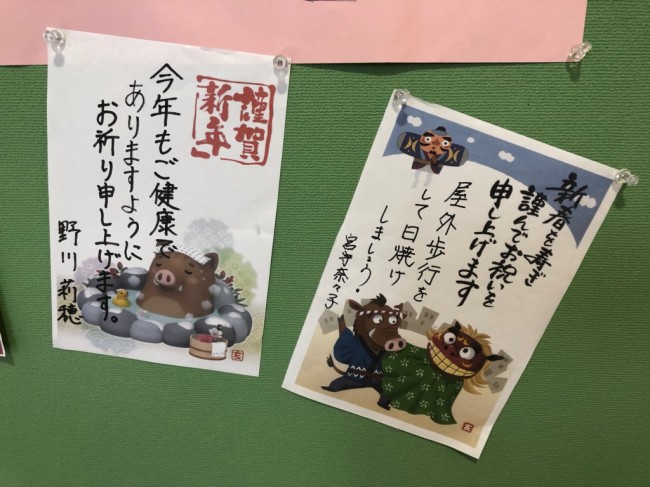 謹賀
新年
今年もご健康で
ありますように
お祈り申し上げます。
野川 莉穂
亥
新春を寿ぎ
謹んでお祝いを
申し上げます
屋外歩行を
して日焼け
しましょう！
奈々子
亥